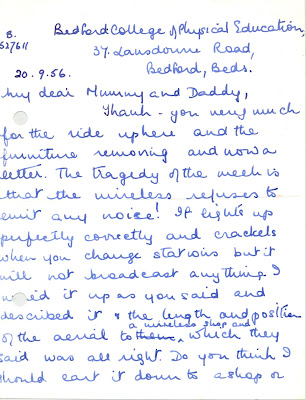 B.
527611
Bedford College of Physical Education,
37. Lansdowne Road,
Bedford, Beds.
20.9.56.
My dear Mummy and Daddy,
Thank-you very much
for the ride up here and the
furniture removing and now a
letter. The tragedy of the week is
that the wireless refuses to
emit any noise! It lights up
perfectly correctly and crackels
when you change stations but it
will not broadcast anything. I
it up as you said and
described it & the length and position
a wireless shop and
of the aerial to them, which they
said was all right. Do you think I
should cart it down to a shop or